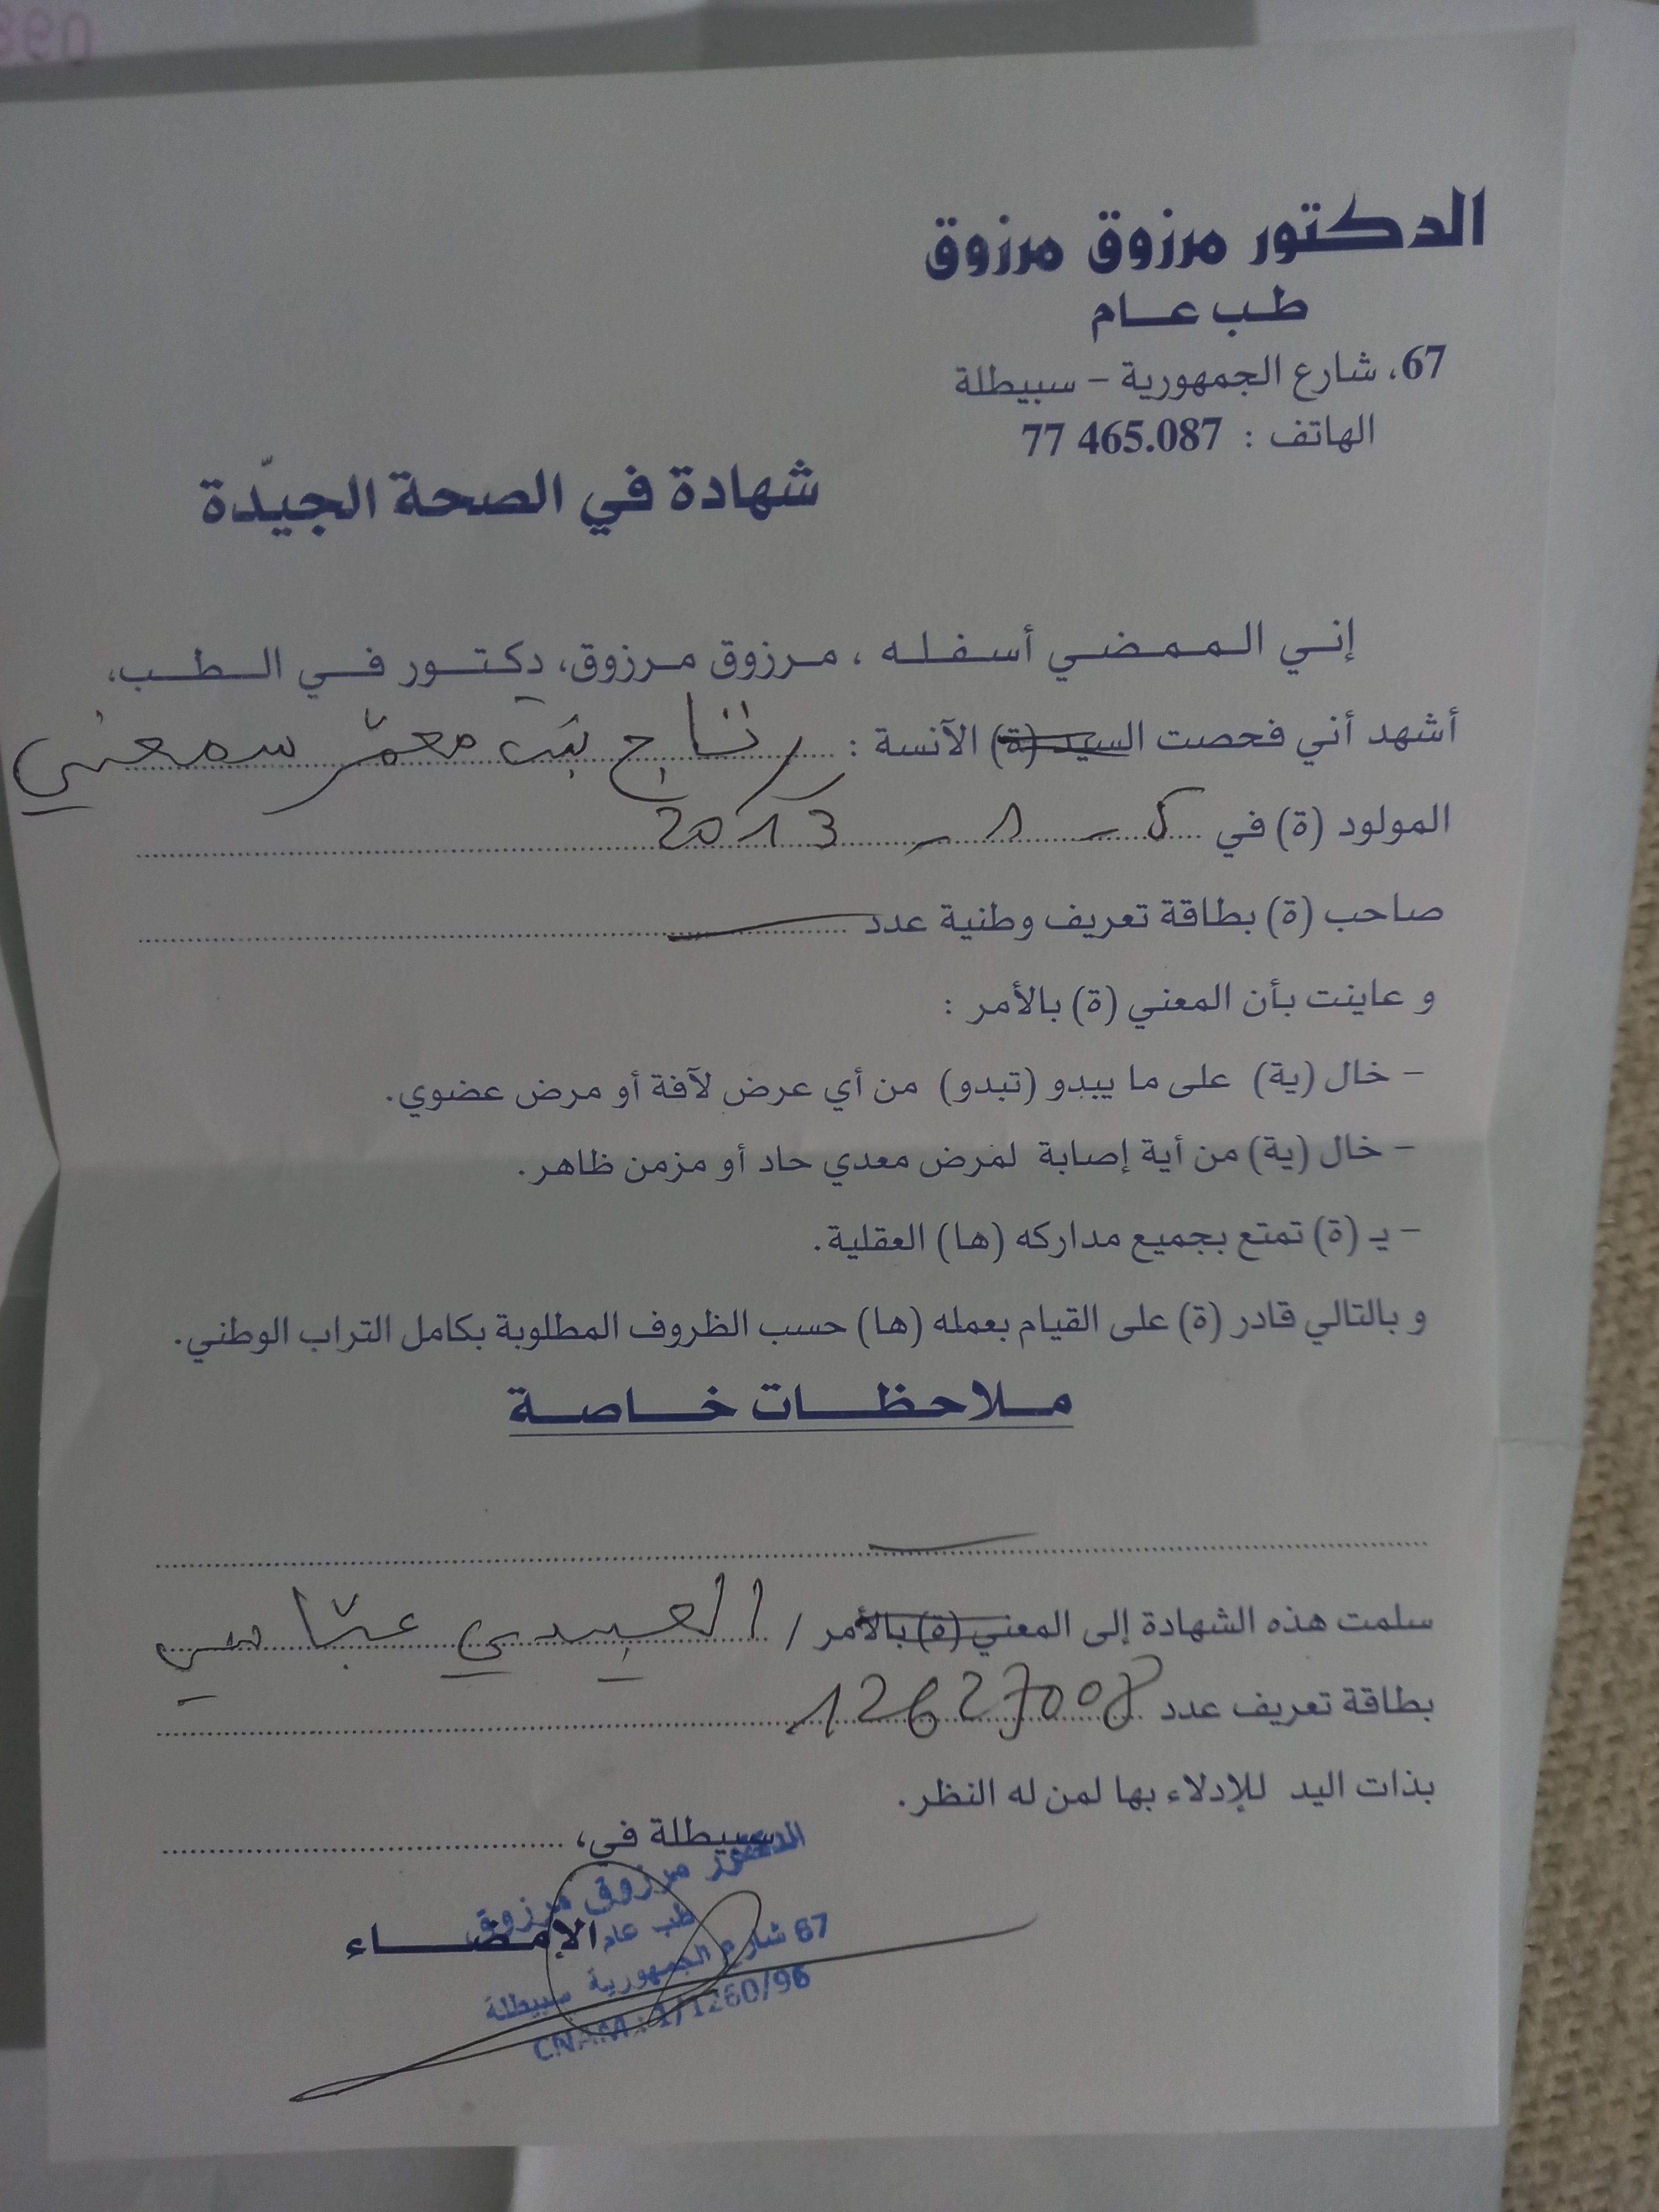 الدكتور مرزوق مرزوق
طب عام
67، شارع الجمهورية - سبيطلة
الهاتف : 77 465.087
شهادة في الصحة الجيّدة
إني الممضي أسفله ، مرزوق مرزوق، دكتور في الطب،
أشهد أني فحصت السيد (ة) الآنسة : رتاج بنت معمّر سمعلي
المولود (ة) في 5 - 1 - 2013
صاحب (ة) بطاقة تعريف وطنية عدد
و عاينت بأن المعني (ة) بالأمر :
- خال (ية) على ما يبدو (تبدو) من أي عرض لآفة أو مرض عضوي.
- خال (ية) من أية إصابة لمرض معدي حاد أو مزمن ظاهر.
- يـ (ة) تمتع بجميع مداركه (ها) العقلية.
و بالتالي قادر (ة) على القيام بعمله (ها) حسب الظروف المطلوبة بكامل التراب الوطني.
ملاحظات خاصة
سلمت هذه الشهادة إلى المعني (ة) بالأمر / العيدي عبّاسي
بطاقة تعريف عدد 12627008
بذات اليد للإدلاء بها لمن له النظر.
سبيطلة في،
الإمضاء
الدكتور مرزوق مرزوق
طب عام
67 شارع الجمهورية سبيطلة
CNAM : 1/1260/96